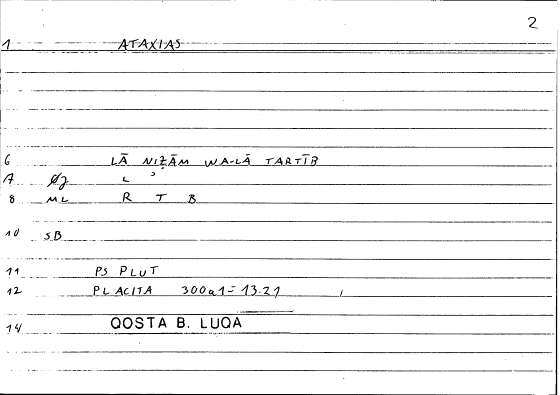 2
1 ATAXIAS
6 LĀ NIẒĀM WA-LĀ TARTĪB
7 Øj L ʾ
8 ML R T B
10 SB
11 PS PLUT
12 PLACITA 300a1 = 13.21
14 QOSTA B. LUQA